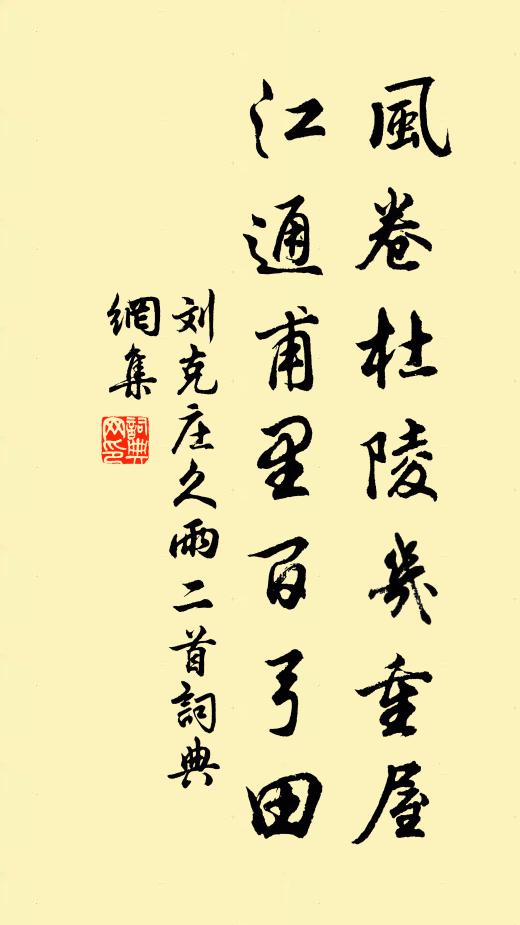 風卷杜陵幾重屋
江通甫里百弓田
刘克庄久雨二首詞典
網集
詞典
网印